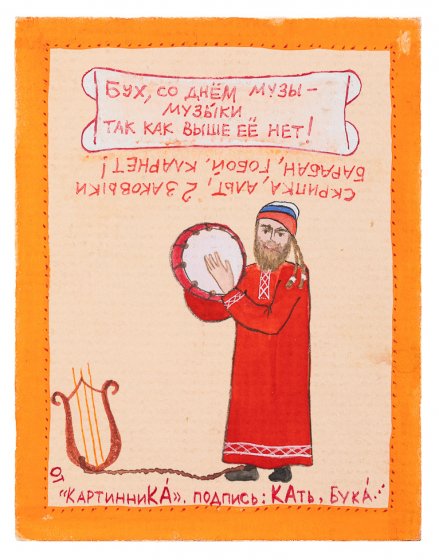 БУХ, СО ДНЁМ МУЗЫ-
МУЗЫ́КИ
ТАК КАК ВЫШЕ ЕЁ НЕТ!
СКРИПКА, АЛЬТ, 2 ЗАКОВЫКИ
БАРАБАН, ГОБОЙ. КЛАРНЕТ!
"КАРТИННИКА́". ПОДПИСЬ: КАТЬ, БУКА́.